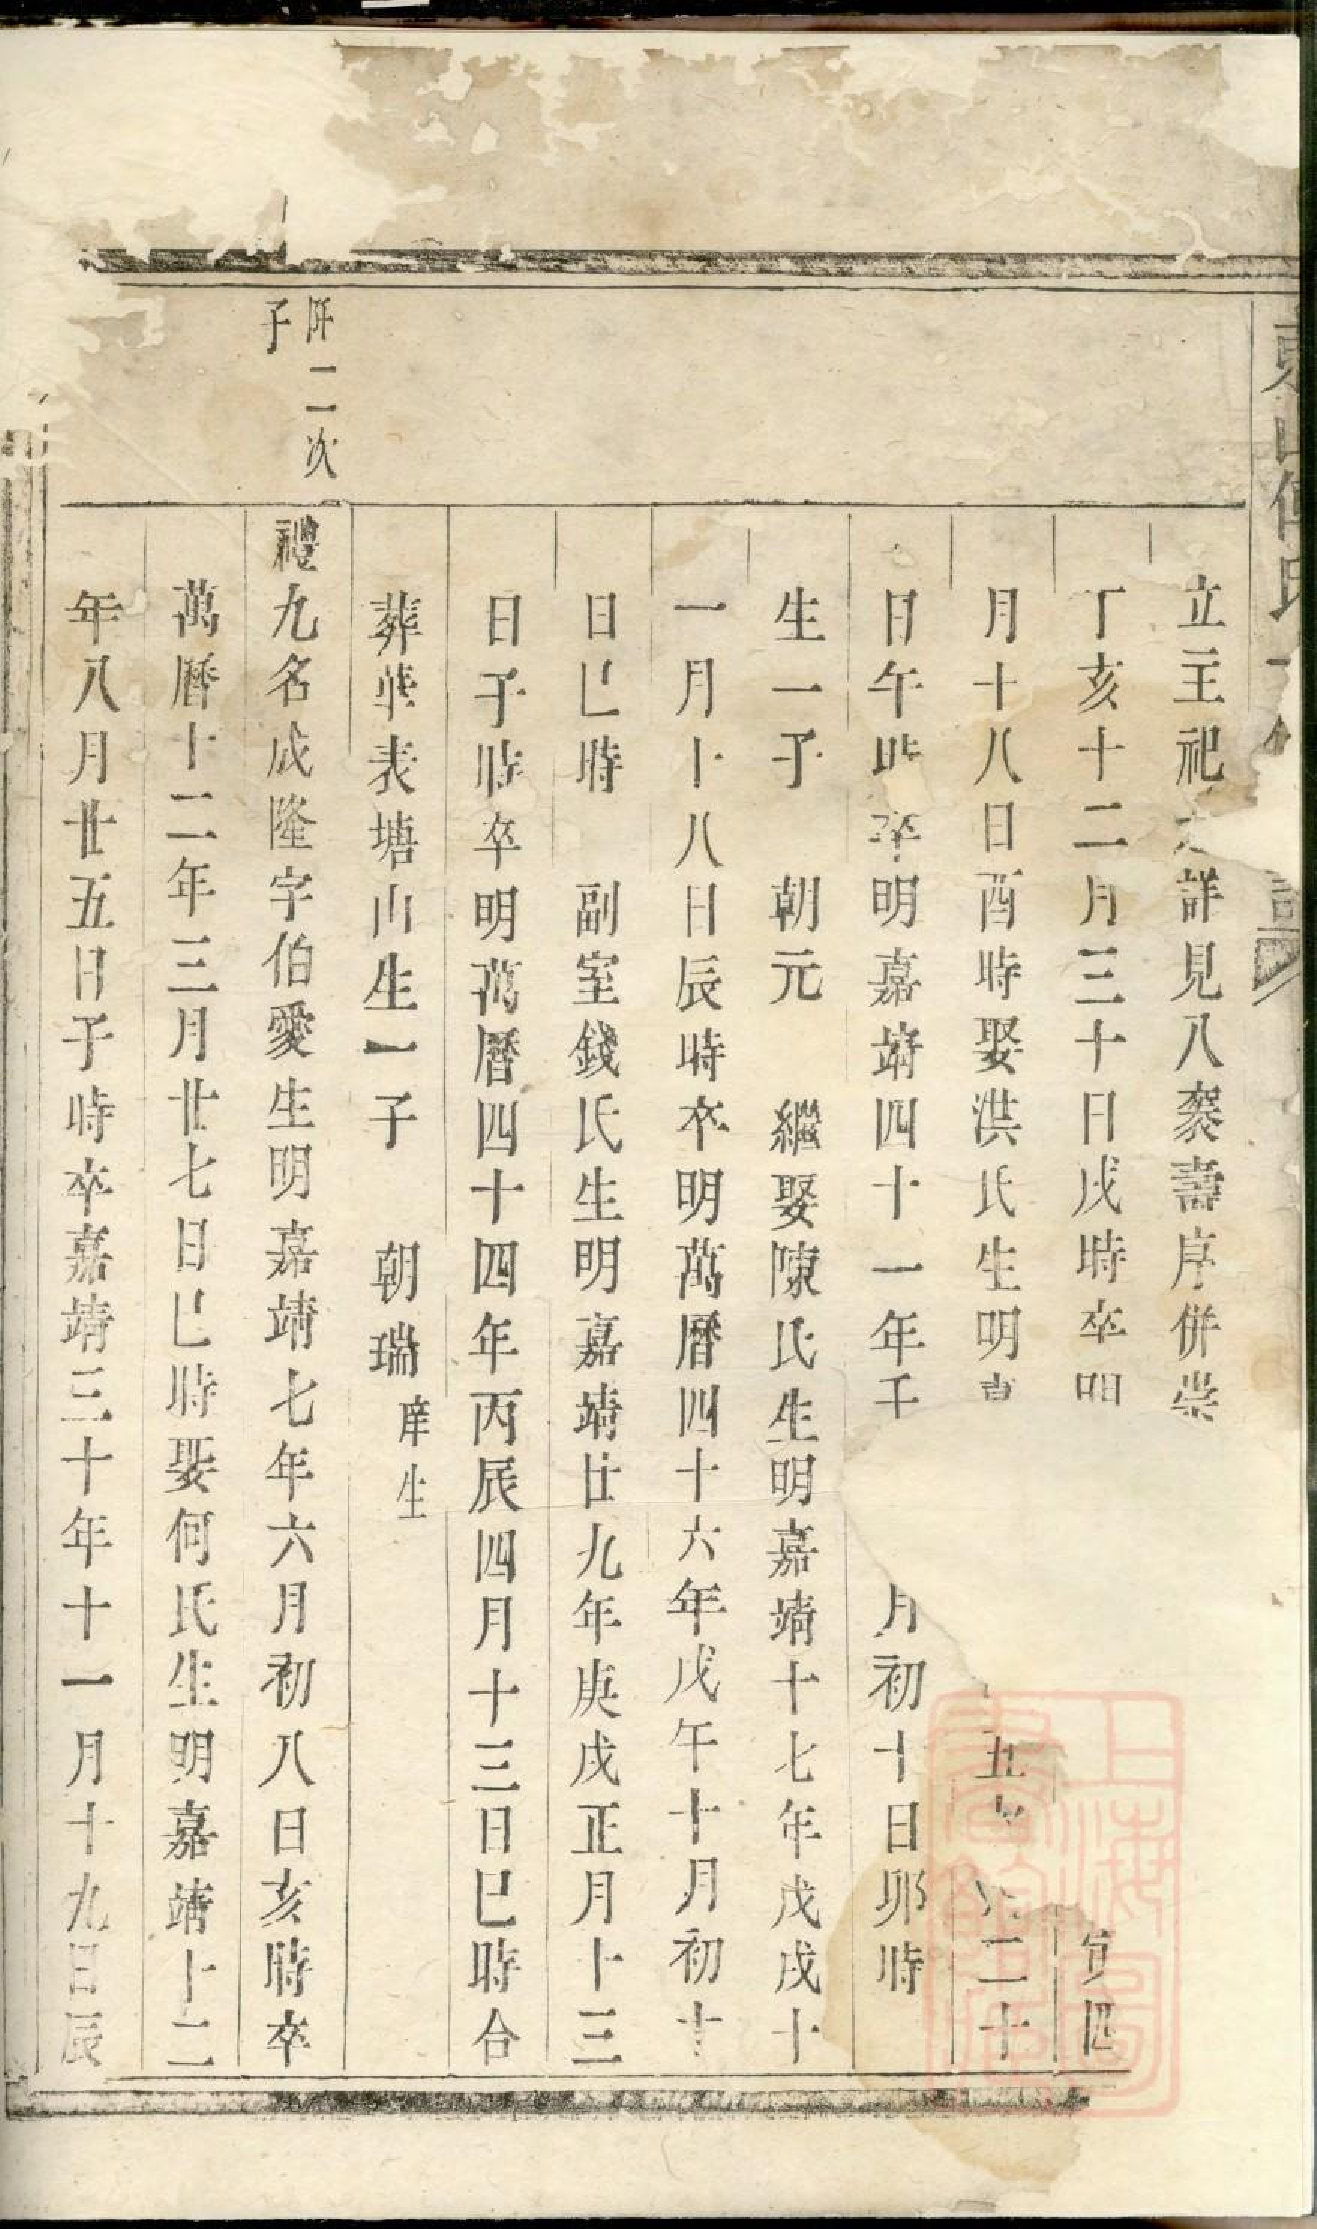 立主祀 詳見八袠壽序併崇
丁亥十二月三十日戌時卒明
月十八日酉時娶洪氏生明 五 二十
日午時卒明嘉靖四十一年壬 月初十日卯時
生一子 朝元 繼娶陳氏生明嘉靖十七年戊戌十
一月十八日辰時卒明萬曆四十六年戊午十月初十
日巳時 副室錢氏生明嘉靖廿九年庚戌正月十三
日子時卒明萬曆四十四年丙辰四月十三日巳時合
葬華表塘山生一子 朝瑞 庠生
阡二次
子
禮九名成隆字伯愛生明嘉靖七年六月初八日亥時卒
萬曆十二年三月廿七日巳時娶何氏生明嘉靖十二
年八月廿五日子時卒嘉靖三十年十一月十九日辰
上海圖書館藏